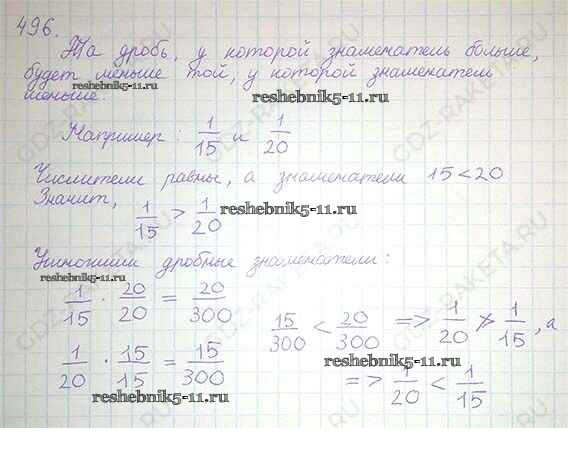 496.
Та дробь, у которой знаменатель больше,
будет меньше той, у которой знаменатель
меньше.
reshebnik5-11.ru
reshebnik5-11.ru
Например: 1/15 и 1/20
Числители равны, а знаменатели 15 < 20
Значит, 1/15 > 1/20
reshebnik5-11.ru
Умножим дробные знаменатели:
reshebnik5-11.ru
1/15 · 20/20 = 20/300
1/20 · 15/15 = 15/300
15/300 < 20/300 => 1/20 ≯ 1/15, а
=> 1/20 < 1/15
reshebnik5-11.ru
reshebnik5-11.ru
GDZ-RAKETA.RU